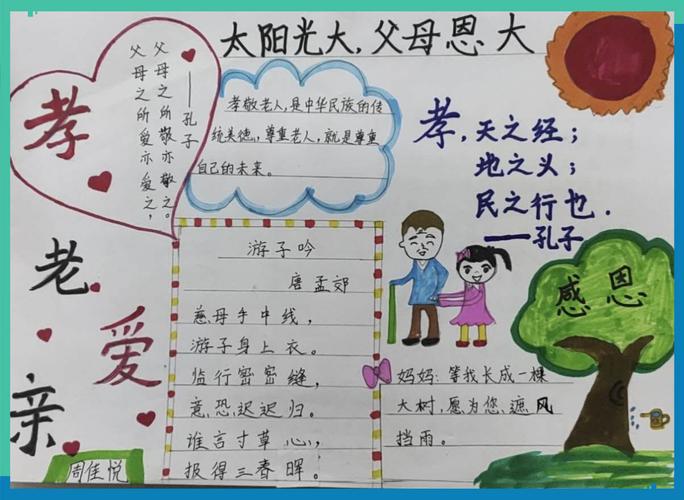 太阳光大，父母恩大
孝
老
爱
亲
父母之所爱亦爱之，
父母之所敬亦敬之。
——孔子
孝敬老人，是中华民族的传
统美德，尊重老人，就是尊重
自己的未来。
孝，天之经；
地之义；
民之行也．
——孔子
游子吟
唐 孟郊
慈母手中线，
游子身上衣。
临行密密缝，
意恐迟迟归。
谁言寸草心，
报得三春晖。
感恩
妈妈：等我长成一棵
大树，愿为您遮风
挡雨。
周佳悦